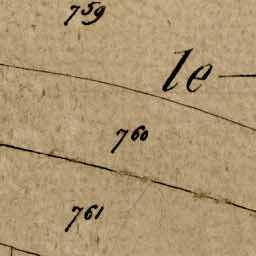 759
le
760
761